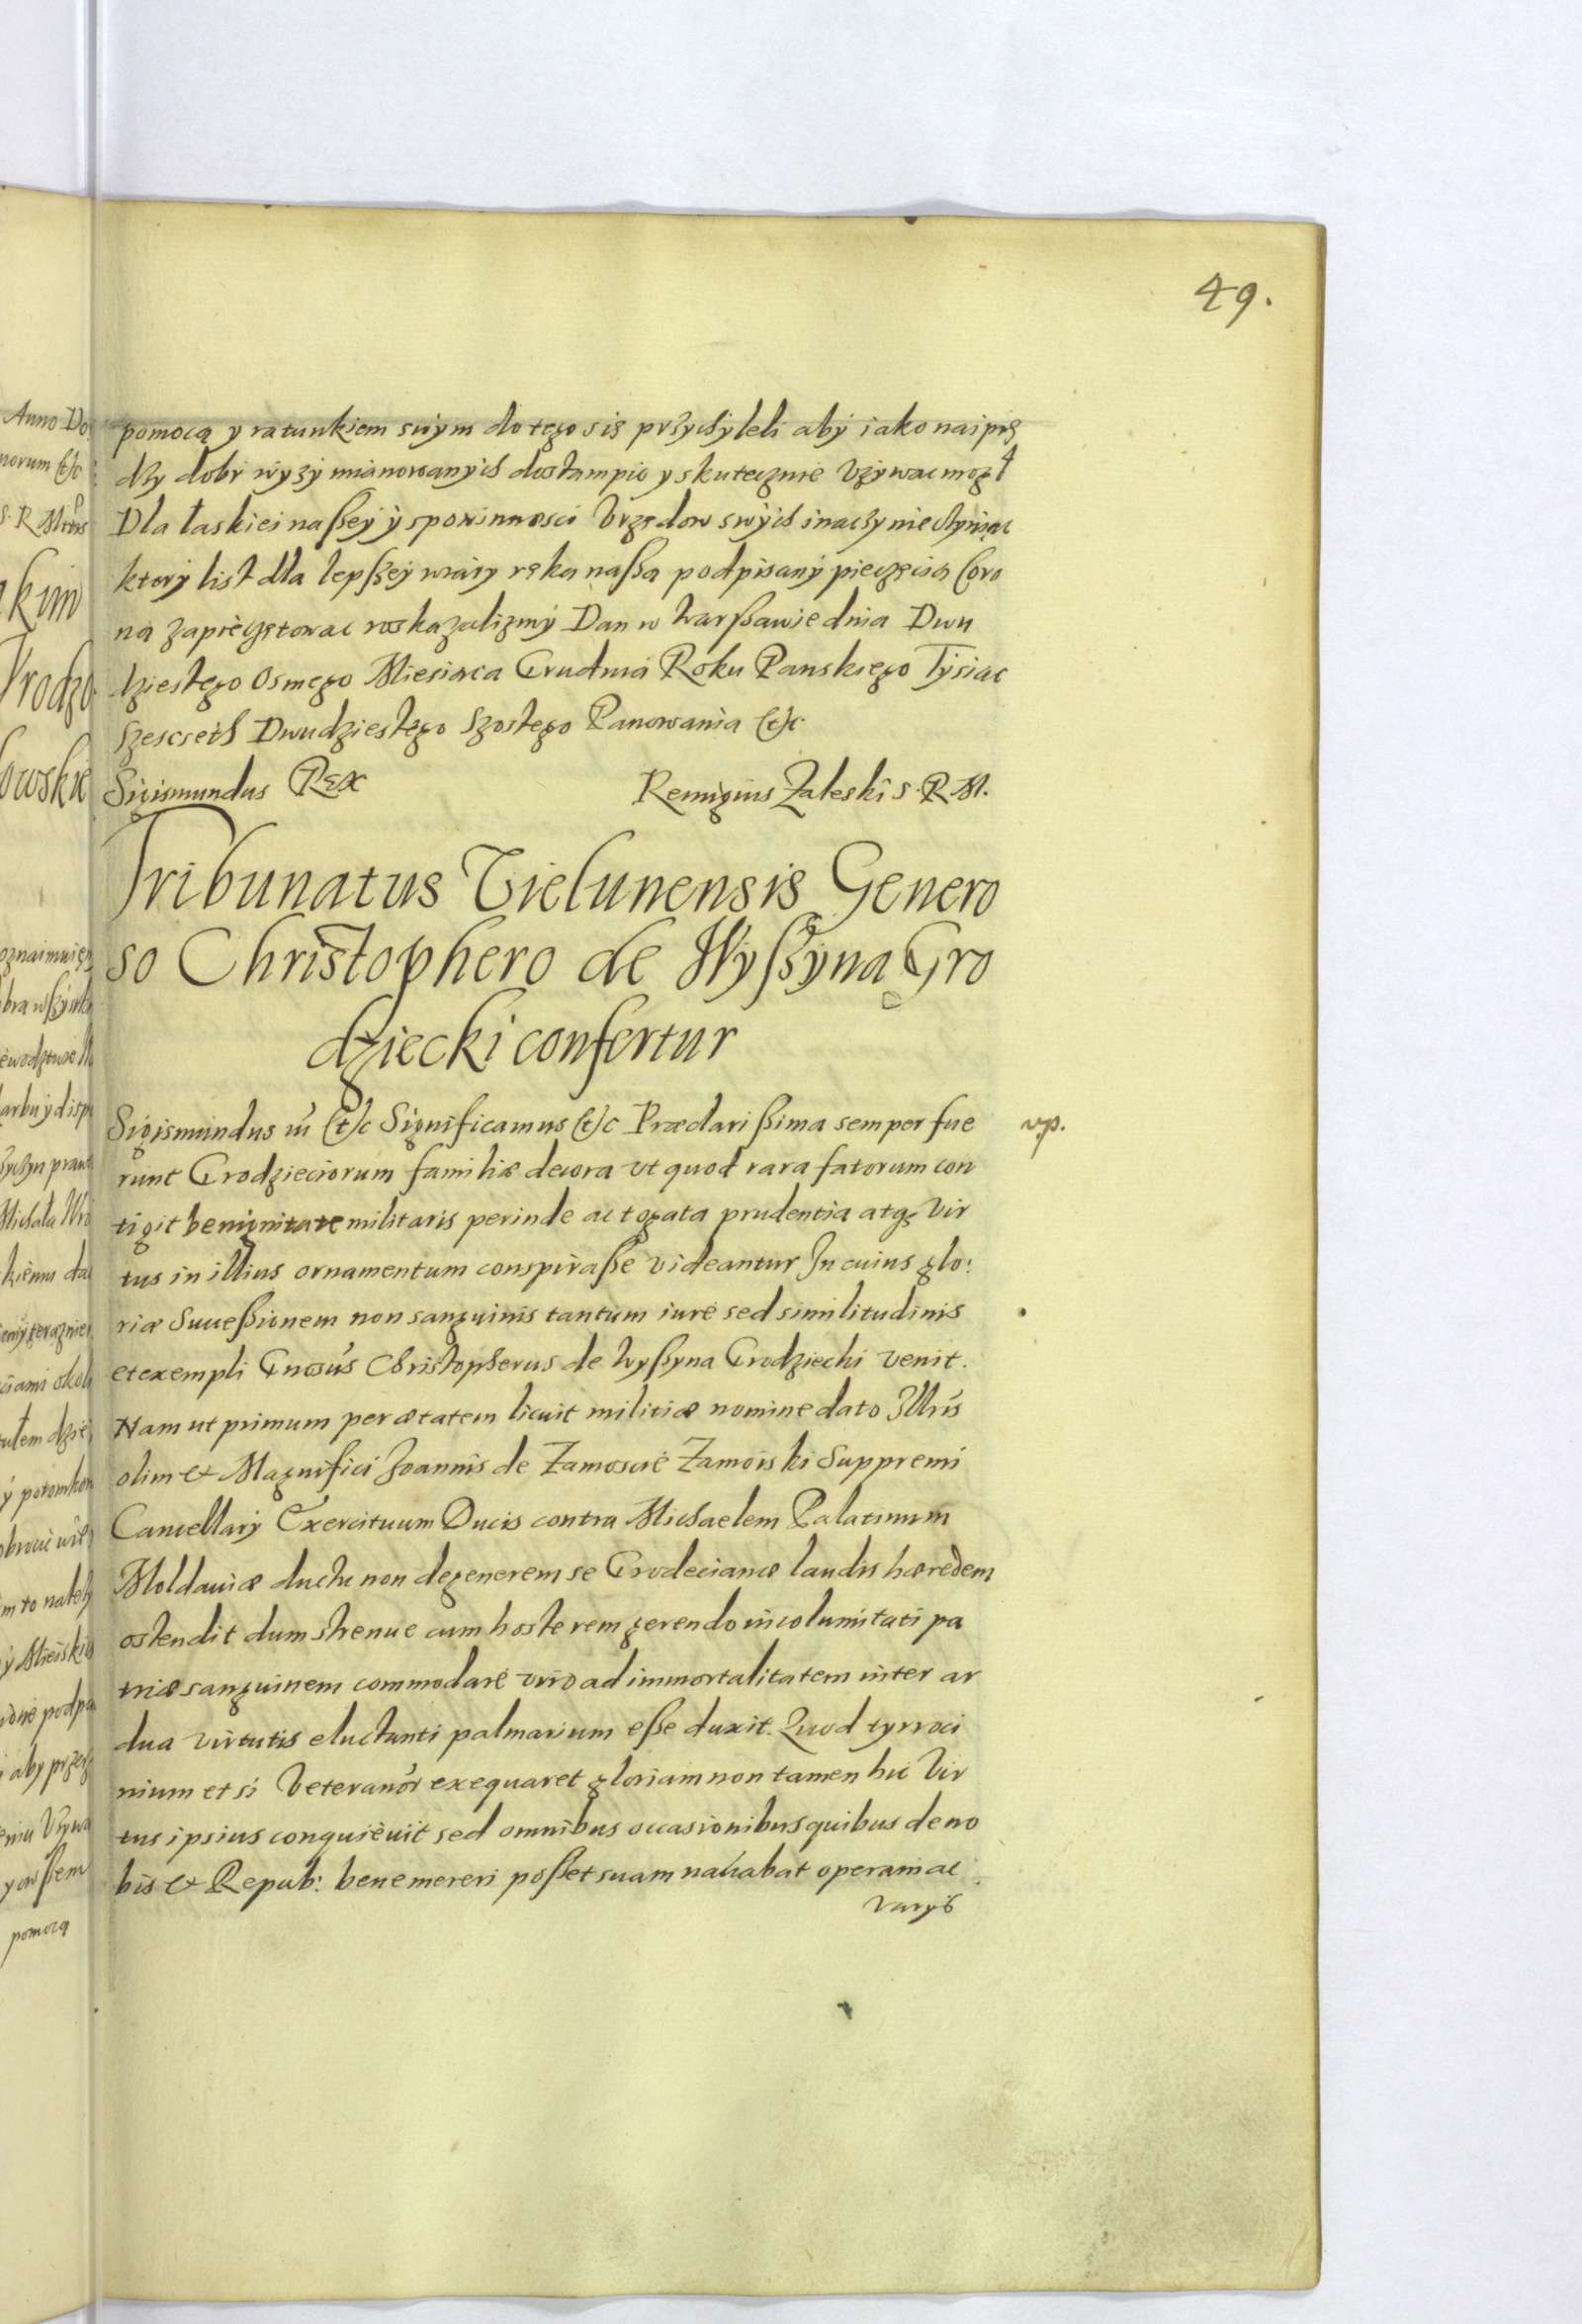 49.
pomocą y ratunkiem swym do tego się przychyleli aby iako naiprę
dzy dobr wyży mianowanych dostampic y skutecznie Używac mogł
Dla łaskiei naßey y spowinnosci Urzędow swych inaczy nie czyniąc
ktory list dla lepßey wiary ręką naßą podpisany pieczęcią Coro
ną zapieczętowac roskazalizmy Dan w Warßawie dnia Dwu
dziestego Osmego Miesiaca Grudnia Roku Panskiego Tysiac
szescseth Dwudziestego Szostego Panowania etc
Sigismundus Rex Remigius Zaleski S. R. M.
Tribunatus Vielunensis Genero
so Christophero de Wyßyna Gro
dziecki confertur
Sigismundus iii etc Significamus etc Præclarißima semper fue
runt Grodzieciorum familiæ decora ut quod rara fatorum con
tigit benignitate militaris perinde ac togata prudentia atq Vir
tus in illius ornamentum conspiraße videantur In cuius glo:
riæ Succeßionem non sanguinis tantum iure sed similitudinis
et exempli Gnosus Christopherus de Wyßyna Grodziecki venit.
Nam ut primum per ætatem licuit militiæ nomine dato Illris
olim & Magnifici Joannis de Zamoscie Zamoiski Suppremi
Cancellarij Exercituum Ducis contra Michaelem Palatinum
Moldaviæ ductu non degenerem se Grodecianæ laudis hæredem
ostendit dum strenue cum hoste rem gerendo incolumitati pa
triæ sanguinem commodare viro ad immortalitatem inter ar
dua virtutis eluctanti palmarium eße duxit. Quod tyrroci
nium et si Veteranor exequaret gloriam non tamen hic Vir
tus ipsius conquievit sed omnibus occasionibus quibus de no
bis & Repub: bene mereri poßet suam navabat operam ac
varijs